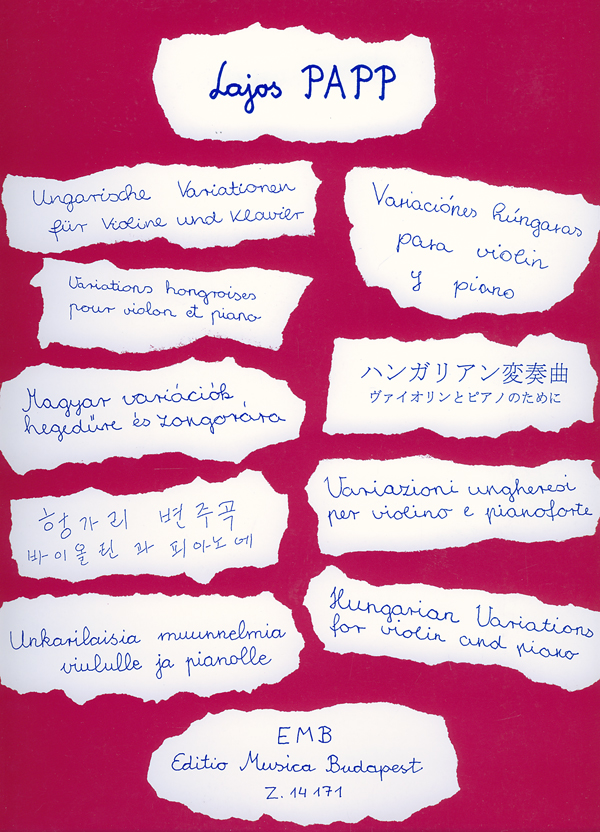 Lajos PAPP
Ungarische Variationen
für Violine und Klavier
Variaciónes húngaras
para violin
y piano
Variations hongroises
pour violon et piano
ハンガリアン変奏曲
ヴァイオリンとピアノのために
Magyar variációk
hegedűre és zongorára
Variazioni ungheresi
per violino e pianoforte
헝가리 변주곡
바이올린과 피아노에
Unkarilaisia muunnelmia
viululle ja pianolle
Hungarian Variations
for violin and piano
EMB
Editio Musica Budapest
Z. 14 171